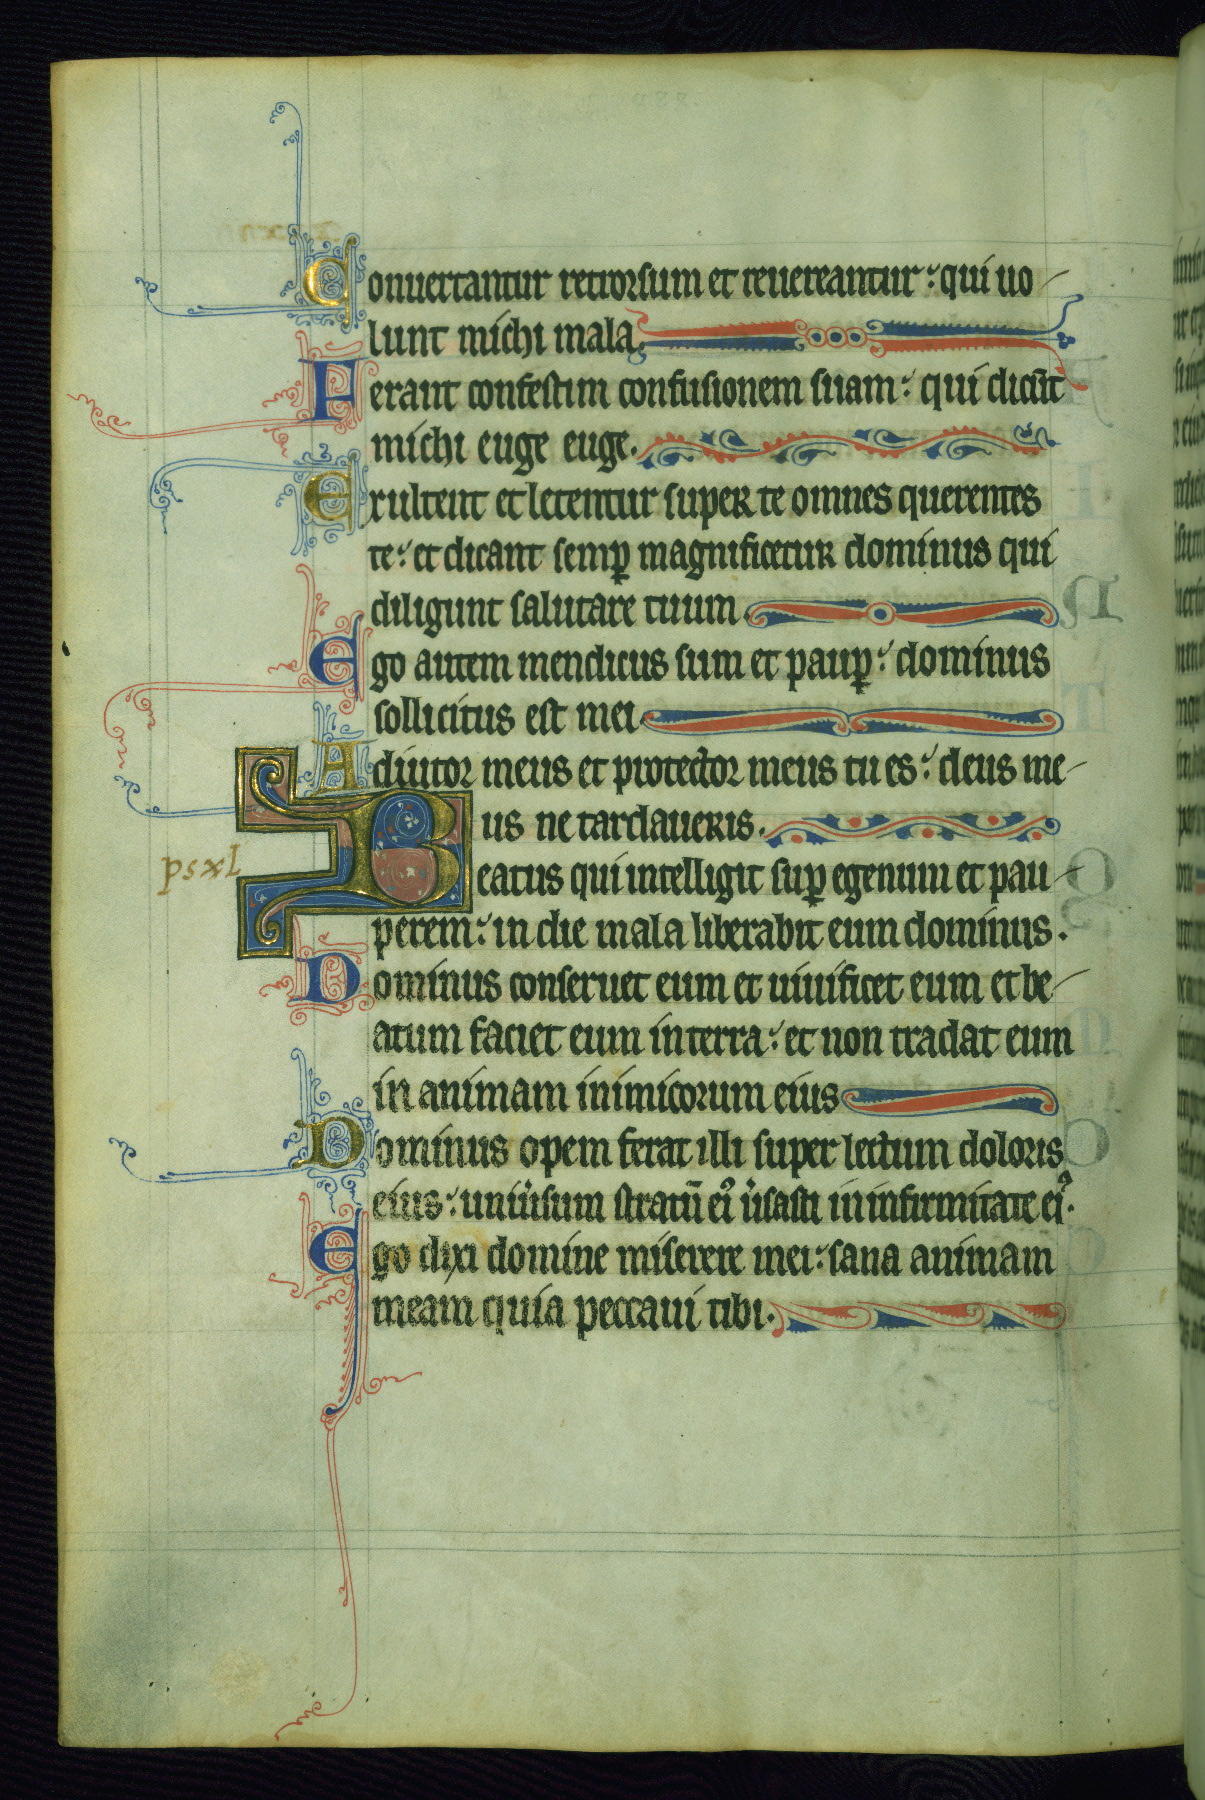 Conuertantur retrorsum et reuereantur: qui uo
lunt michi mala.
Ferant confestim confusionem suam: qui dicūt
michi euge euge.
Exultent et letentur super te omnes querentes
te: et dicant semꝑ magnificetur dominus qui
diligunt salutare tuum.
Ego autem mendicus sum et pauꝑ: dominus
sollicitus est mei.
Adiutor meus et protector meus tu es: deus me
us ne tardaueris.
psxl
Beatus qui intelligit suꝑ egenum et pau
perem: in die mala liberabit eum dominus.
Dominus conseruet eum et uiuificet eum et be
atum faciet eum in terra: et non tradat eum
in animam inimicorum eius
Dominus opem ferat illi super lectum doloris
eius: uniu̾sum stratū ei᾿ u̾sasti in infirmitate ei᾿.
Ego dixi domine miserere mei: sana animam
meam quia peccaui tibi.